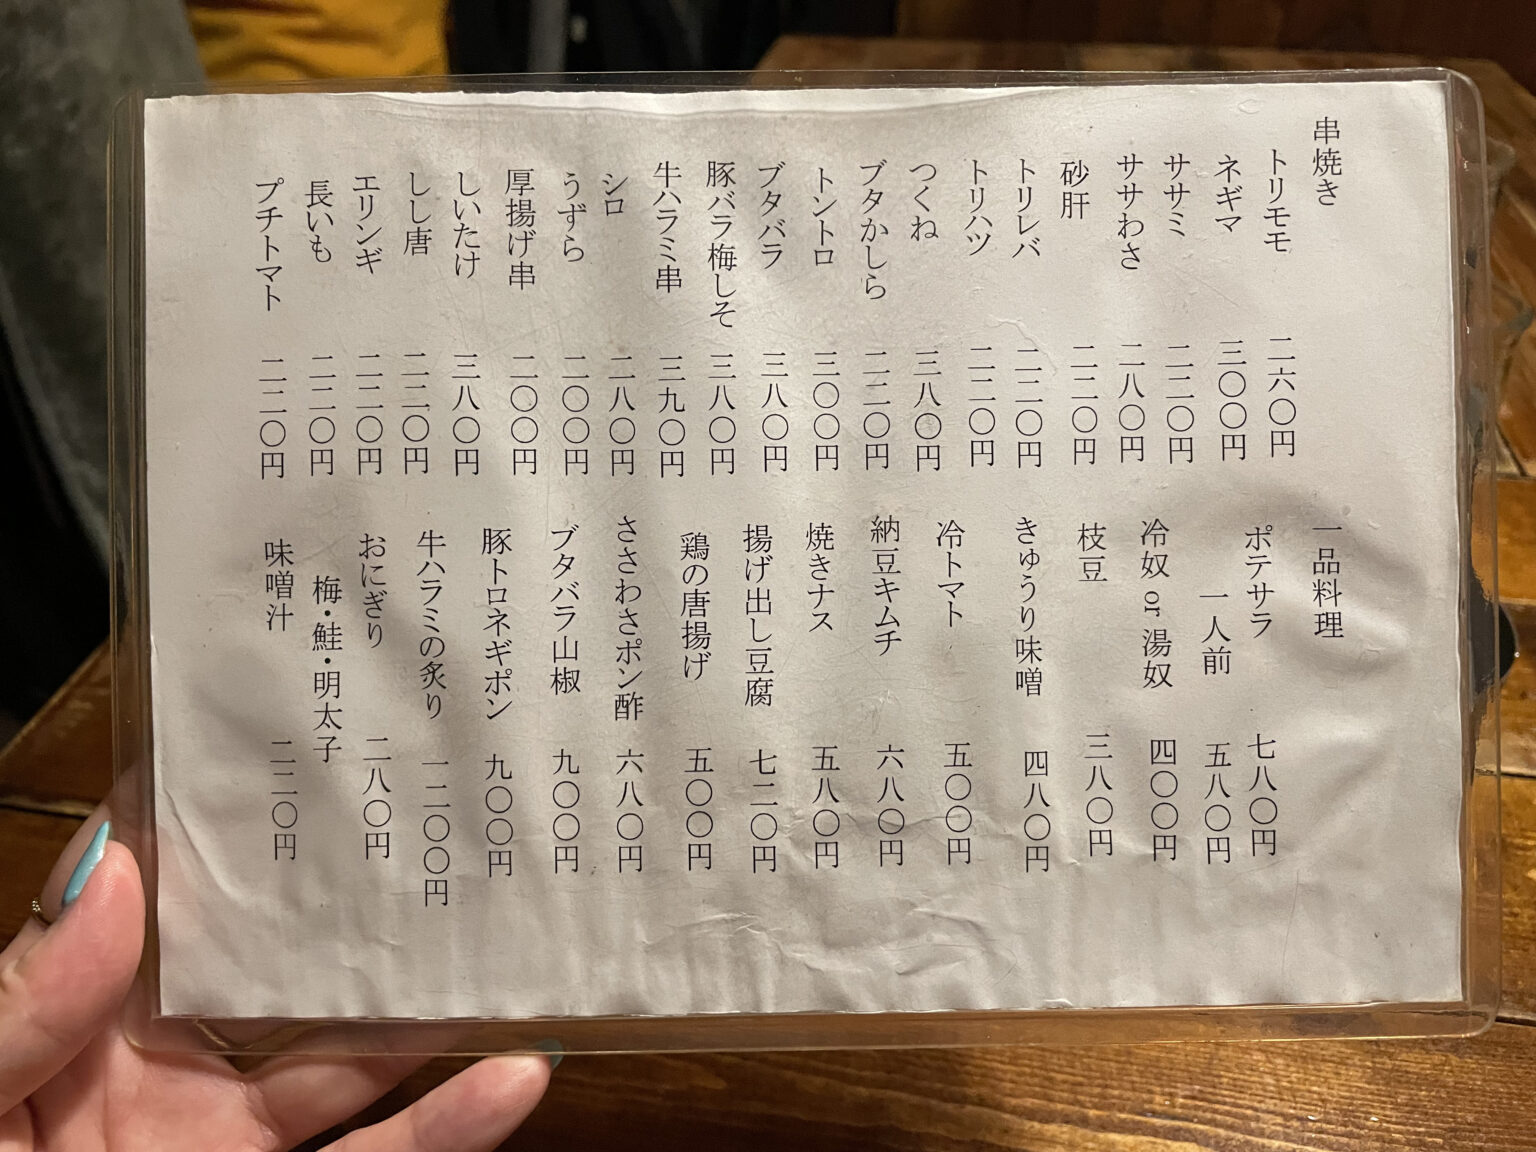 串焼き
トリモモ 二六〇円
ネギマ 三〇〇円
ササミ 二二〇円
ササわさ 二八〇円
砂肝 二二〇円
トリレバ 二二〇円
トリハツ 二二〇円
つくね 三八〇円
ブタかしら 二二〇円
トントロ 三〇〇円
ブタバラ 三八〇円
豚バラ梅しそ 三八〇円
牛ハラミ串 三九〇円
シロ 二八〇円
うずら 二〇〇円
厚揚げ串 二〇〇円
しいたけ 三八〇円
しし唐 二二〇円
エリンギ 二二〇円
長いも 二二〇円
プチトマト 二二〇円
一品料理
ポテサラ 七八〇円
一人前 五八〇円
冷奴 or 湯奴 四〇〇円
枝豆 三八〇円
きゅうり味噌 四八〇円
冷トマト 五〇〇円
納豆キムチ 六八〇円
焼きナス 五八〇円
揚げ出し豆腐 七二〇円
鶏の唐揚げ 五〇〇円
ささわさポン酢 六八〇円
ブタバラ山椒 九〇〇円
豚トロネギポン 九〇〇円
牛ハラミの炙り 一二〇〇円
おにぎり 二八〇円
梅・鮭・明太子
味噌汁 二二〇円